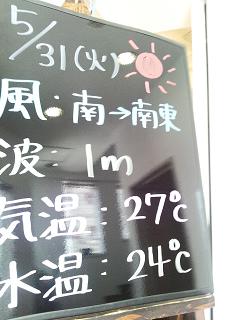 5/31(火)
風:南→南東
波:1m
気温:27℃
水温:24℃